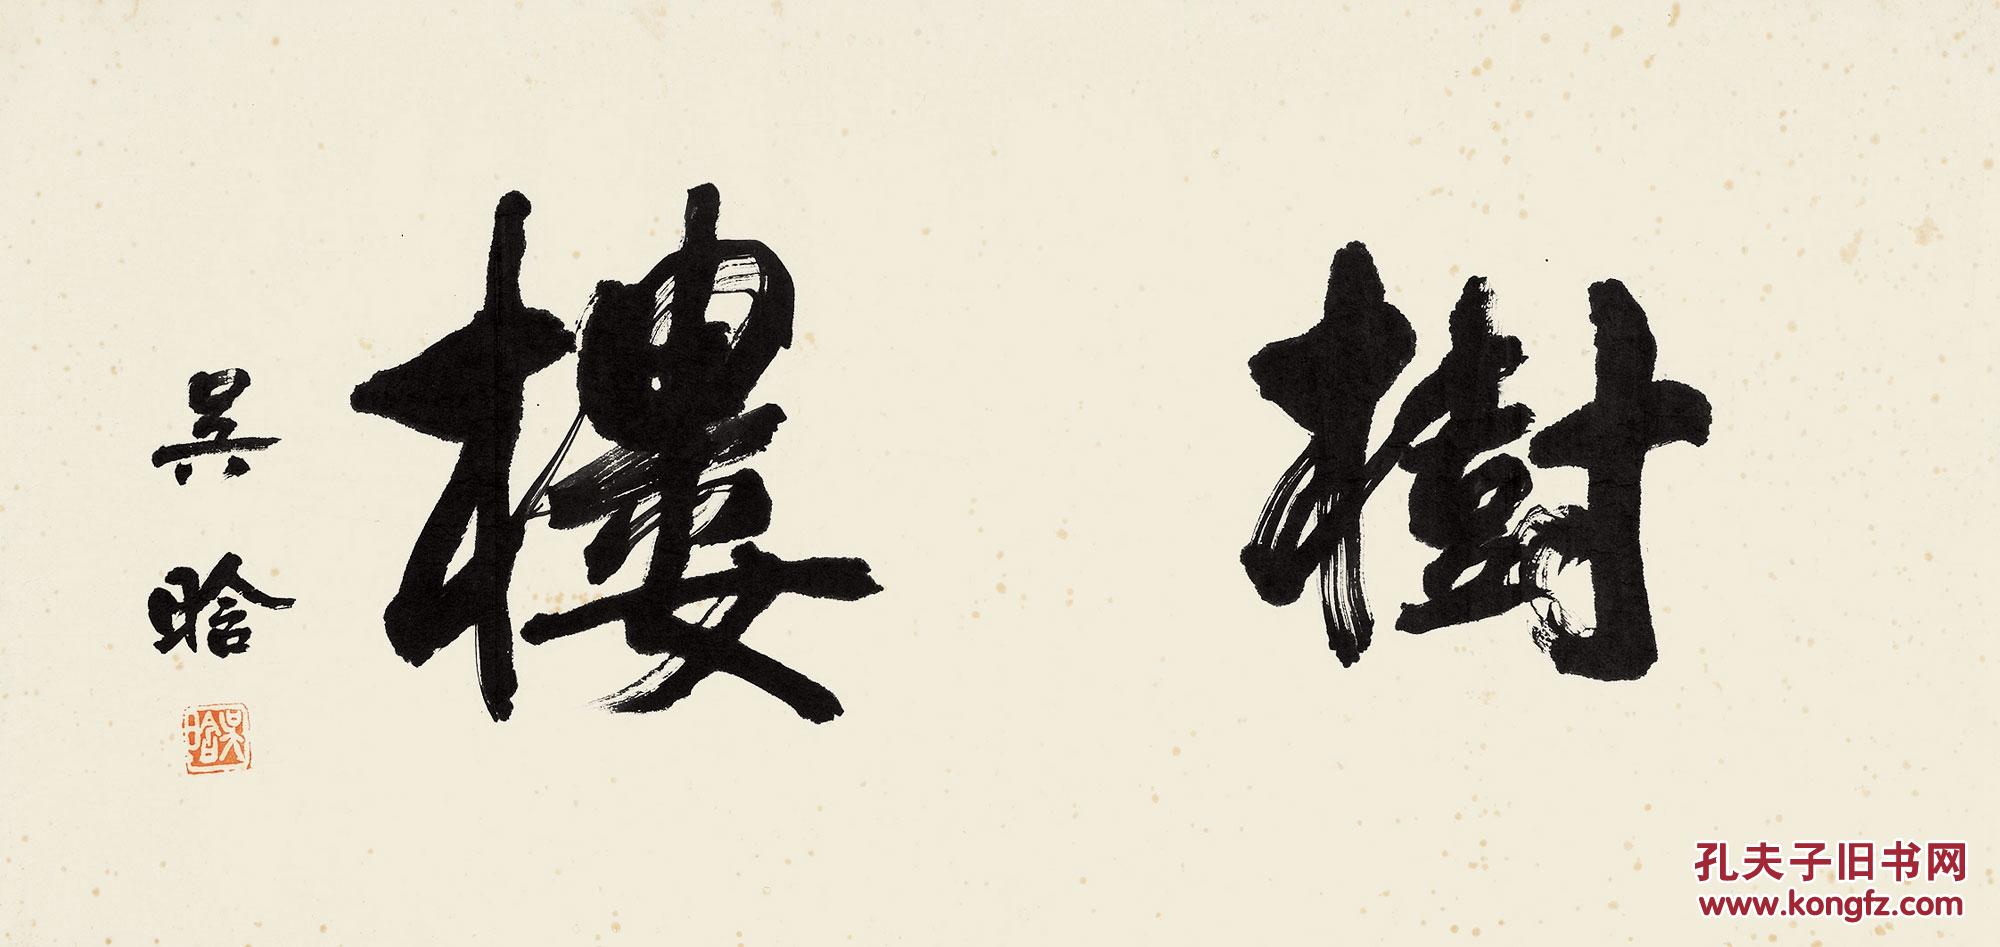 樹樓
吴晗
吴晗
孔夫子旧书网
www.kongfz.com